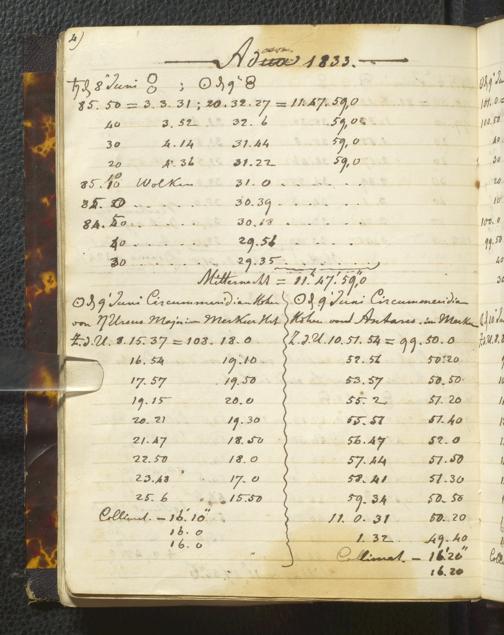 4)
Anno 1833.
♄ d. 8t Juni 8 ; ☉ d. 9t 8
85.50 = 3.3.31 ; 20.32.27 = 11.47.59,0
40 3.52 32.6 59,0
30 4.14 31.44 59,0
20 4.36 31.22 59,0
85.10 Wolken 31.0
30.39
84. 30.18
40 29.56
30 29.35
Mitternacht = 11h 47' 59"0
☉ d. 9t Juni Circummeridian Höhen
von η Ursus Major im Merkur Hof
Z.d.U. 8.15.37 = 108.18.0
16.54 19.10
17.57 19.50
19.15 20.0
20.21 19.30
21.47 18.50
22.50 18.0
23.48 17.0
25.6 15.50
Collimat. – 16'.10"
16.0
16.0
☉ d. 9t Juni Circummeridian
Höhen von Antares im Merkur
Z.d.U. 10.51.54 = 99.50.0
52.56 50.20
53.57 50.50
55.2 51.20
55.57 51.40
56.47 52.0
57.44 51.50
58.41 51.30
59.34 50.50
11.0.31 50.20
1.32 49.40
Collimat. – 16'20"
16.20